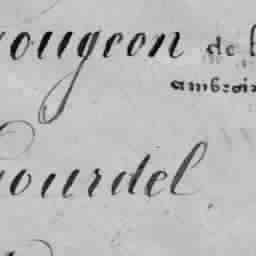 ougeon de
ambroi
ourdel